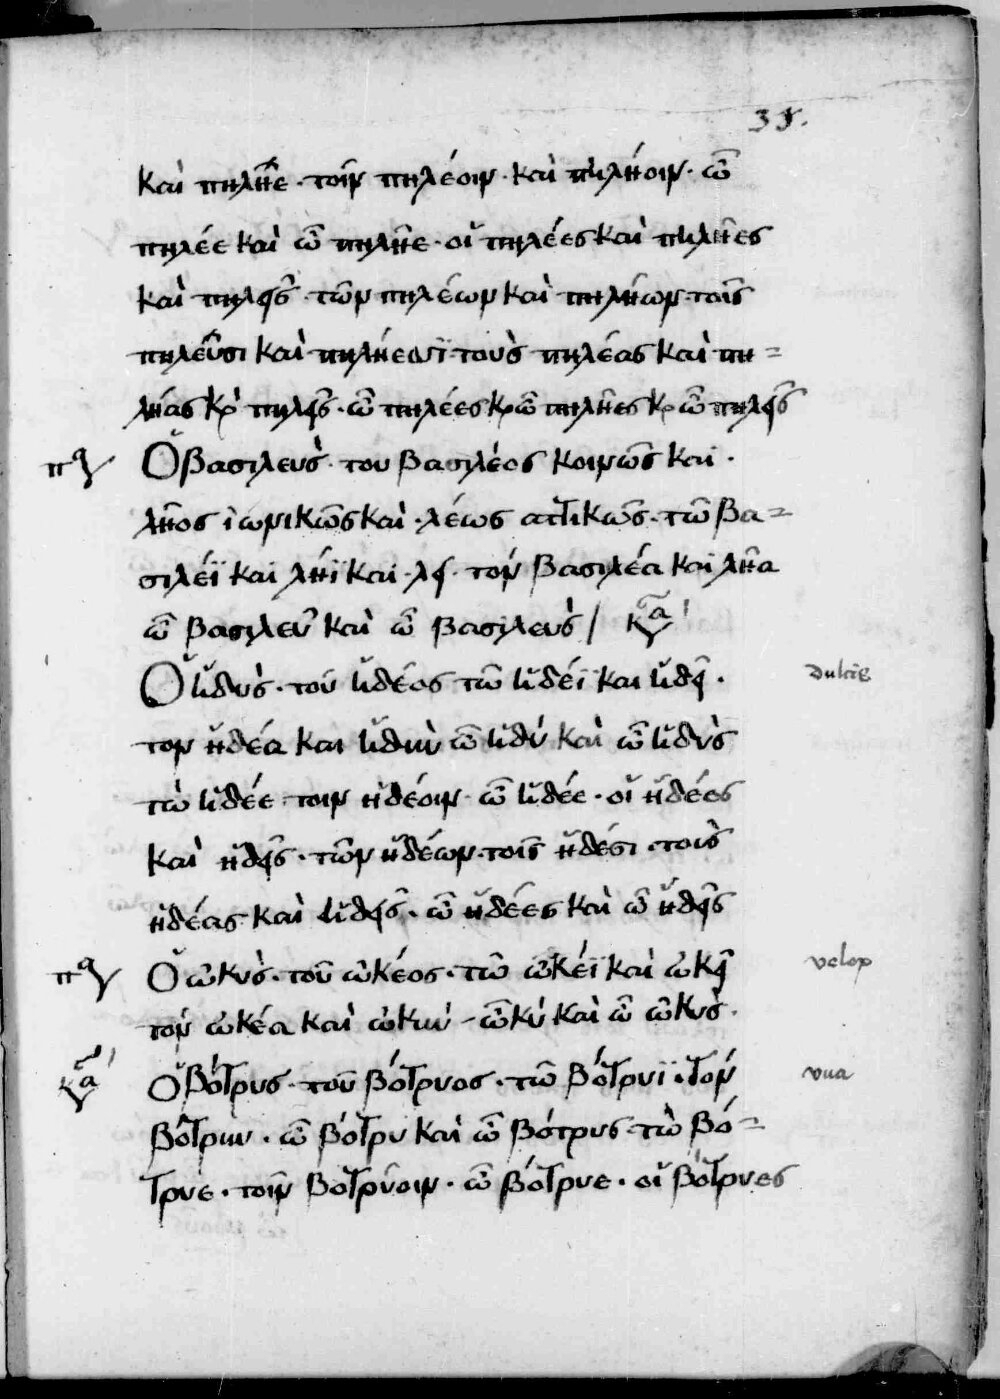 35.
καὶ πηλῆε · τοῖν πηλέοιν · καὶ πηλήοιν · ὦ
πηλέε καὶ ὦ πηλῆε · οἱ πηλέες καὶ πηλῆες
καὶ πηλεῖς · τῶν πηλέων καὶ πηλήων · τοῖς
πηλεῦσι καὶ πηλήεσϊ · τοὺς πηλέας καὶ πη=
λήας κὶ πηλεῖς · ὦ πηλέες κὶ ὦ πηλῆες κὶ ὦ πηλεῖς
Ὁ βασιλεὺς · του βασιλέος κοινῶς και ·
λῆος ἰωνικῶς καὶ · λέως ατἰκῶς · τῶ βα=
σιλέϊ και λήϊ και · λεῖ · τὸν βασιλέα και λῆα
ὦ βασιλεῦ καὶ ὦ βασιλεὺς /
Ὁ ἡδὺς · τοῦ ἡδέος τῶ ἡδέϊ και ἡδεῖ · dulcis
τον ἡδέα και ἡδὺν ὦ ἡδύ καὶ ὦ ἡδὺς
τὼ ἡδέε τοιν ἡδέοιν · ὦ ἡδέε · οἱ ἡδέες
καὶ ἡδεῖς · τῶν ἡδέων · τοῖς ἡδέσι · τοὺς
ἡδέας καὶ ἡδεῖς · ὦ ἡδέες καὶ ὦ ἡδεῖς
Ὁ ὠκὺς · τοῦ ὠκέος · τῶ ὠκέϊ καὶ ὠκεῖ velox
τὸν ὠκέα καὶ ὠκὺν - ὦκὺ καὶ ὦ ὠκὺς ·
Ὁ βότρυς · τοῦ βότρυος · τῶ βότρυϊ · τὸν vua
βότρυν · ὦ βότρυ καὶ ὦ βότρυς · τὼ βό=
τρυε · τοῖν βοτρύοιν · ὦ βότρυε · οἱ βότρυες